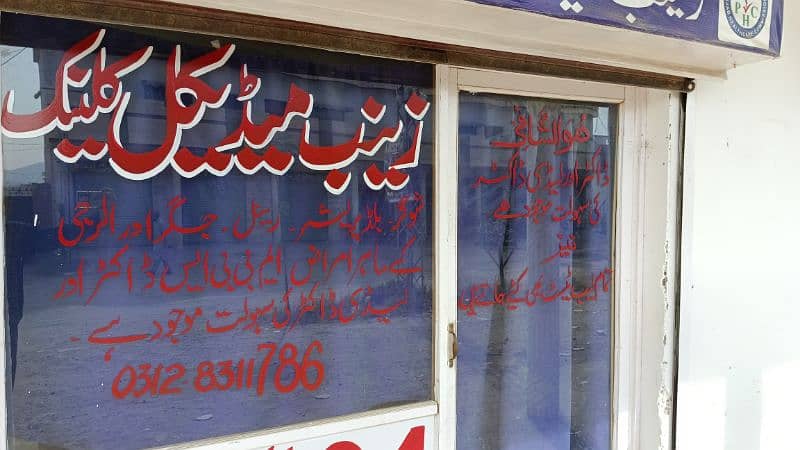 زینب میڈیکل کلینک
شوگر، بلڈ پریشر، رینل، جگر اور الرجی
کے ماہر امراض ایم بی بی ایس ڈاکٹر اور
لیڈی ڈاکٹر کی سہولت موجود ہے۔
0312 8311786
ھوالشافی
ڈاکٹر اور لیڈی ڈاکٹر
کی سہولت موجود ہے
نیز
تمام لیب ٹیسٹ بھی کیئے جاتے ہیں
PHC
زینب